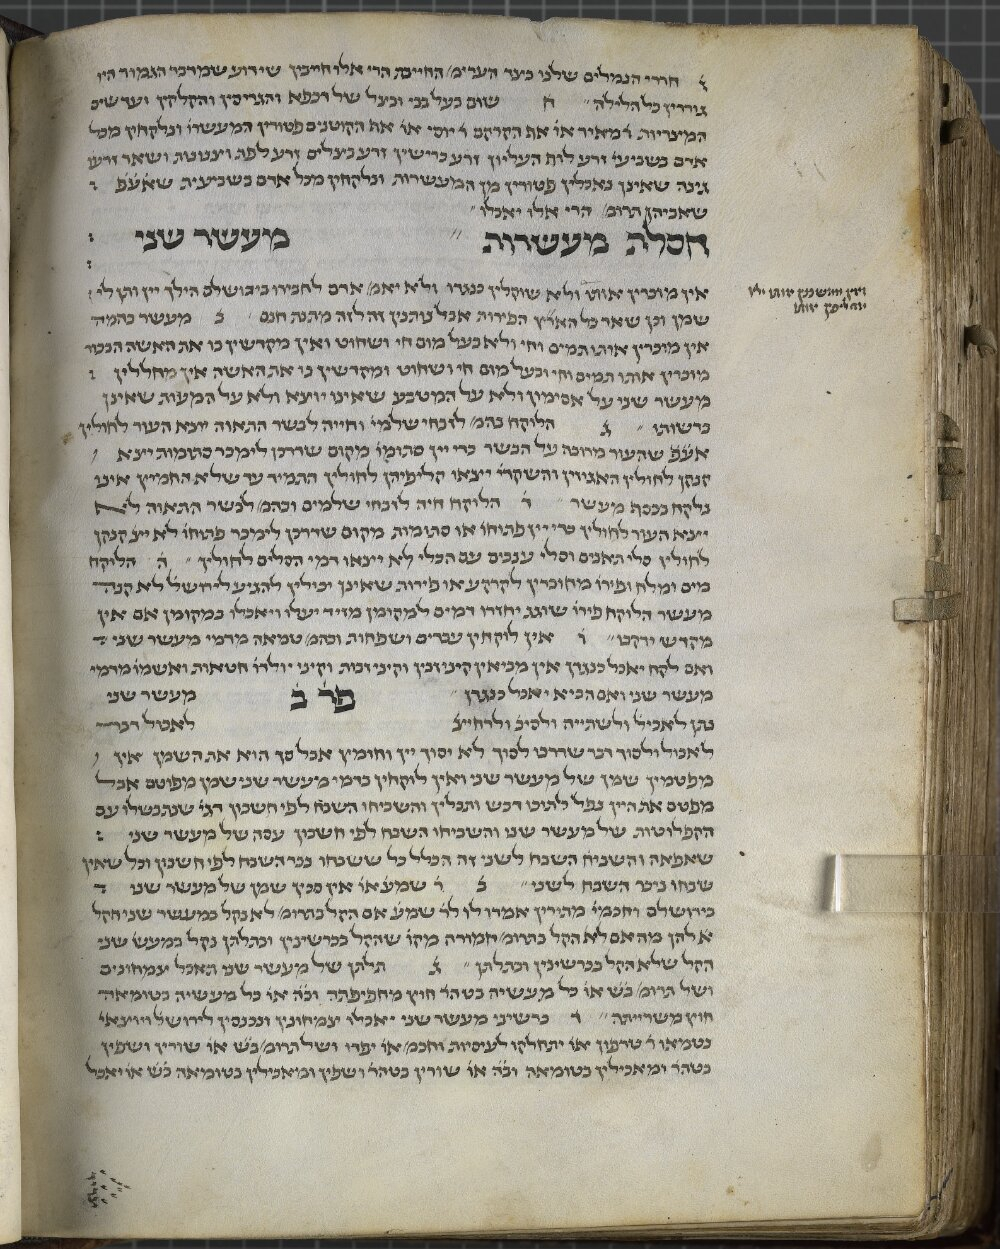 חררי הנמלים שלנו בצד הערימ׳ החייבת הרי אלו חייבין שידוע שמדבר הגמור היו
גוררין כל הלילה ח שום בעל בכי ובצל של רכפא והגריסין הקלקין ועדשים
המיצריות ר׳ מאיר או׳ אף הקרקס ר׳ יוסי או׳ אף הקוטנים פטורין המעשרו׳ ונלקחין מכל
אדם בשביעי׳ זרע לוף העליון זרע כרישין זרע בצלים זרע לפת וצנונות ושאר זרעו׳
גינה שאינן נאכלין פטורין מן המעשרות ונלקחין מכל אדם בשביעית שאע״פ
שאביהן תרומ׳ הרי אלו יאכלו
חסלת מעשרות מעשר שני
אין מוכרין אותו ולא שוקלין כנגדו ולא יאמ׳ אדם לחבירו בירושלם הילך יין ותן לי
שמן וכן שאר כל הארץ הפירות אבל נותנין זה לזה מתנת חנם ב מעשר בהמה
אין מוכרין אותו תמים וחי ולא בעל מום חי ושחוט ואין מקדשין בו את האשה הבכור
מוכרין אותו תמים וחי ובעל מום חי ושחוט ומקדשין בו את האשה אין מחללין
מעשר שני על אסימון ולא על המטבע שאינו יוצא ולא על המעות שאינן
ברשותו ג הלוקח בהמ׳ לזבחי שלמי׳ וחייה לבשר התאוה יוצא העור לחולין
אע״פ שהעור מרובה על הבשר כדי יין סתומו׳ מקום שדרכן לימכר סתומות ייצא
קנקן לחולין האגוזין והשקדי׳ ייצאו קליפיהן לחולין התמד עד שלא החמיץ אינו
נלקח בכסף מעשר ד הלוקח חיה לזבחי שלמים ובהמ׳ לבשר התאוה לא
ייצא העור לחולין כדי יין פתוחו׳ או סתומות מקום שדרכן לימכר פתוחו׳ לא ייצ׳ קנקן
לחולין סלי תאנים וסלי ענבים עם הכלי לא ייצאו דמי הסלים לחולין ה הלוקח
מים ומלח ופירו׳ מחוברין לקרקע או פירות שאינן יכולין להגיע לירושל׳ לא קנה
מעשר הלוקח פירו׳ שוגג יחזרו דמים למקומן מזיד יעלו ויאכלו במקומן אם אין
מקדש ירקבו ו אין לוקחין עבדים ושפחות ובהמ׳ טמאה מדמי מעשר שני
ואם לקח יאכל כנגדן אין מביאין קיני זבין וקיני זבות וקיני יולדו׳ חטאות ואשמו׳ מדמי
מעשר שני ואם הביא יאכל כנגדן פר׳ ב מעשר שני
נתן לאכיל׳ ולשתייה ולסיכ׳ ולרחיצ׳ לאכול דבר
לאכול ולסוך דבר שדרכו לסוך לא יסוך יין וחומץ אבל סך הוא את השמן אין
מפטמין שמן של מעשר שני ואין לוקחין בדמי מעשר שני שמן מפוטם אבל
מפטם את היין נפל לתוכו דבש ותבלין והשביחו השבח לפי חשבון דגי׳ שנתבשלו עם
הקפלוטות של מעשר שני והשביחו השבח לפי חשבון עסה של מעשר שני
שאפאה והשביח השבח לשני זה הכלל כל ששבחו ניכר השבח לפי חשבון וכל שאין
שבחו ניכר השבח לשני ב ר׳ שמע׳ או׳ אין סכין שמן של מעשר שני
בירושלם וחכמי׳ מתירין אמרו לו לר׳ שמע׳ אם הקל בתרומ׳ לא נקל במעשר שני הקל
א׳ להן מה אם לא הקל בתרומ׳ חמורה מקו׳ שהקל בכרשינין ובתלתן נקל במעש׳ שני
הקל שלא הקל בכרשינין ובתלתן ג תלתן של מעשר שני תאכל צמחונים
ושל תרומ׳ ב״ש או׳ כל מעשיה בטהר׳ חוץ מחפיפתה וב״ה או׳ כל מעשיה בטומאה
חוץ משרייתה ד כרשיני מעשר שני יאכלו צמחונין ונכנסין לירושל׳ ויוצאי׳
נטמאו ר׳ טרפון או׳ יתחלקו לעיסיות וחכמ׳ או׳ יפדו ושל תרומ׳ ב״ש או׳ שורין ושפין
בטהר׳ ומאכילין בטומאה וב״ה או׳ שורין בטהר׳ ושפין ומאכילין בטומאה ב״ש או׳ יאכל